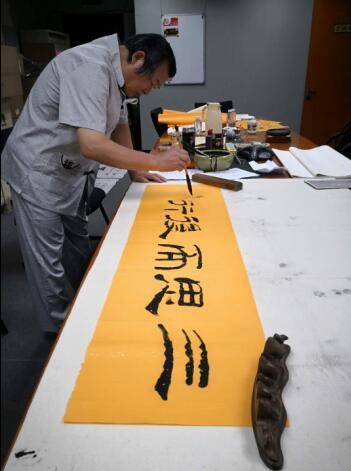 三思而後行